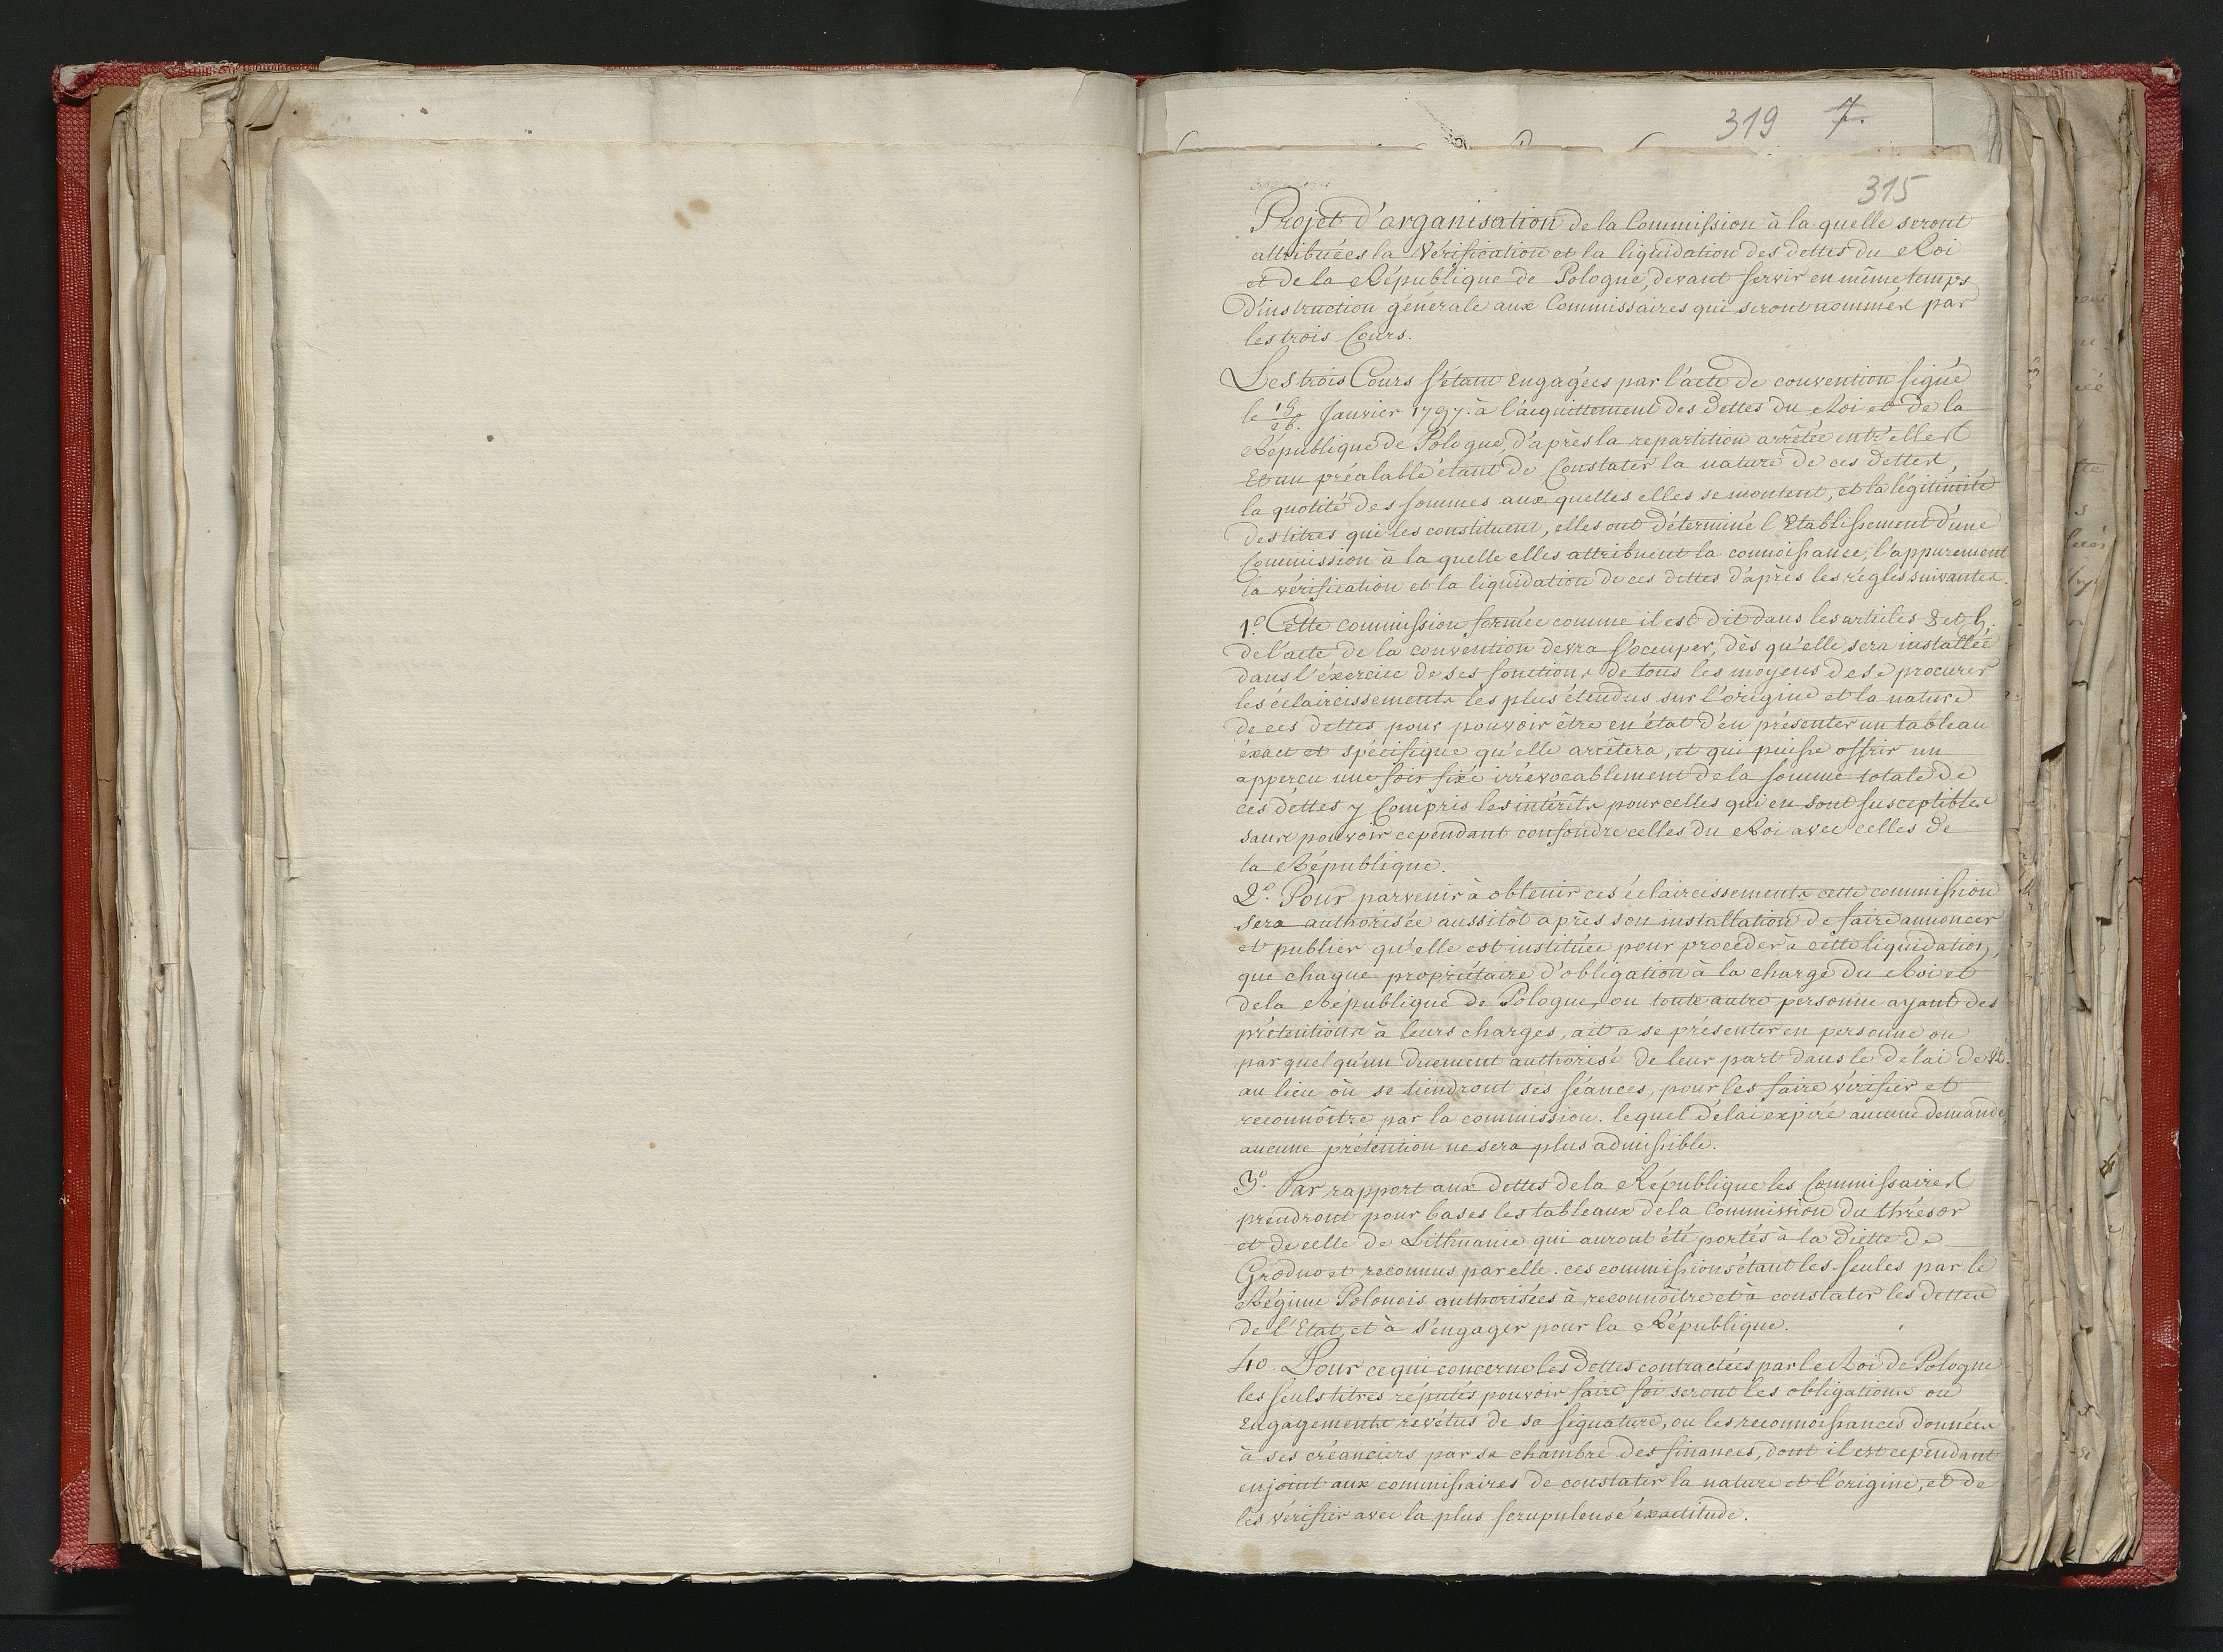 319 7.
315
Projet d'organisation de la Commission à la quelle seront
attribuées la Vérification et la liquidation des dettes du Roi
et de la République de Pologne, devant servir en même temps
d'instruction générale aux Commissaires qui seront nommés par
les trois Cours.
Les trois Cours s'étant Engagées par l'acte de convention signé
le 15/26. Janvier 1797. à l'acquittement des dettes du Roi et de la
République de Pologne, d'après la repartition arrêtée entr'elles
Et un préalable étant de Constater la nature de ces dettes,
la quotité des sommes aux quelles elles se montent, et la légitimité
des titres qui les constituent, elles ont déterminé l'Etablissement d'une
Commission à la quelle elles attribuent la connoissance, l'appurement
la vérification et la liquidation de ces dettes d'après les règles suivantes.
1.° Cette commission formée comme il est dit dans les articles 3 et 5.
de l'acte de la convention devra s'occuper, dès qu'elle sera installée
dans l'éxercice de ses fonctions de tous les moyens de se procurer
les éclaircissements les plus étendus sur l'origine et la nature
de ces dettes pour pouvoir être en état d'en présenter un tableau
éxact et spécifique qu'elle arrêtera, et qui puisse offrir un
apperçu une fois fixé irrévocablement de la somme totale de
ces dettes y Compris les intérêts pour celles qui en sont susceptibles
sans pouvoir cependant confondre celles du Roi avec celles de
la République.
2.° Pour parvenir à obtenir ces éclaircissements cette commission
sera authorisée aussitôt après son installation de faire annoncer
et publier qu'elle est instituée pour procéder à cette liquidation,
que chaque propriétaire d'obligation à la charge du Roi et
de la République de Pologne, ou toute autre personne ayant des
prétentions à leurs charges, ait à se présenter en personne ou
par quelqu'un duement authorisé de leur part dans le délai de
au lieu où se tiendront ses séances, pour les faire vérifier et
reconnôitre par la commission. lequel délai expiré aucune demande,
aucune prétention ne sera plus admissible.
3.° Par rapport aux dettes de la République les Commissaires
prendront pour bases les tableaux de la Commission du thrésor
et de celle de Lithuanie qui auront été portés à la Diette de
Grodno et reconnus par elle. ces commissions étant les seules par le
Régime Polonois authorisées à reconnôitre et à constater les dettes
de l'Etat, et à s'engager pour la République.
4.° Pour ce qui concerne les dettes contractées par le Roi de Pologne
les seuls titres réputés pouvoir faire foi seront les obligations ou
Engagements revêtus de sa signature, ou les reconnoissances données
à ses créanciers par sa chambre des finances, dont il est cependant
enjoint aux commissaires de constater la nature et l'origine, et de
les vérifier avec la plus scrupuleuse éxactitude.